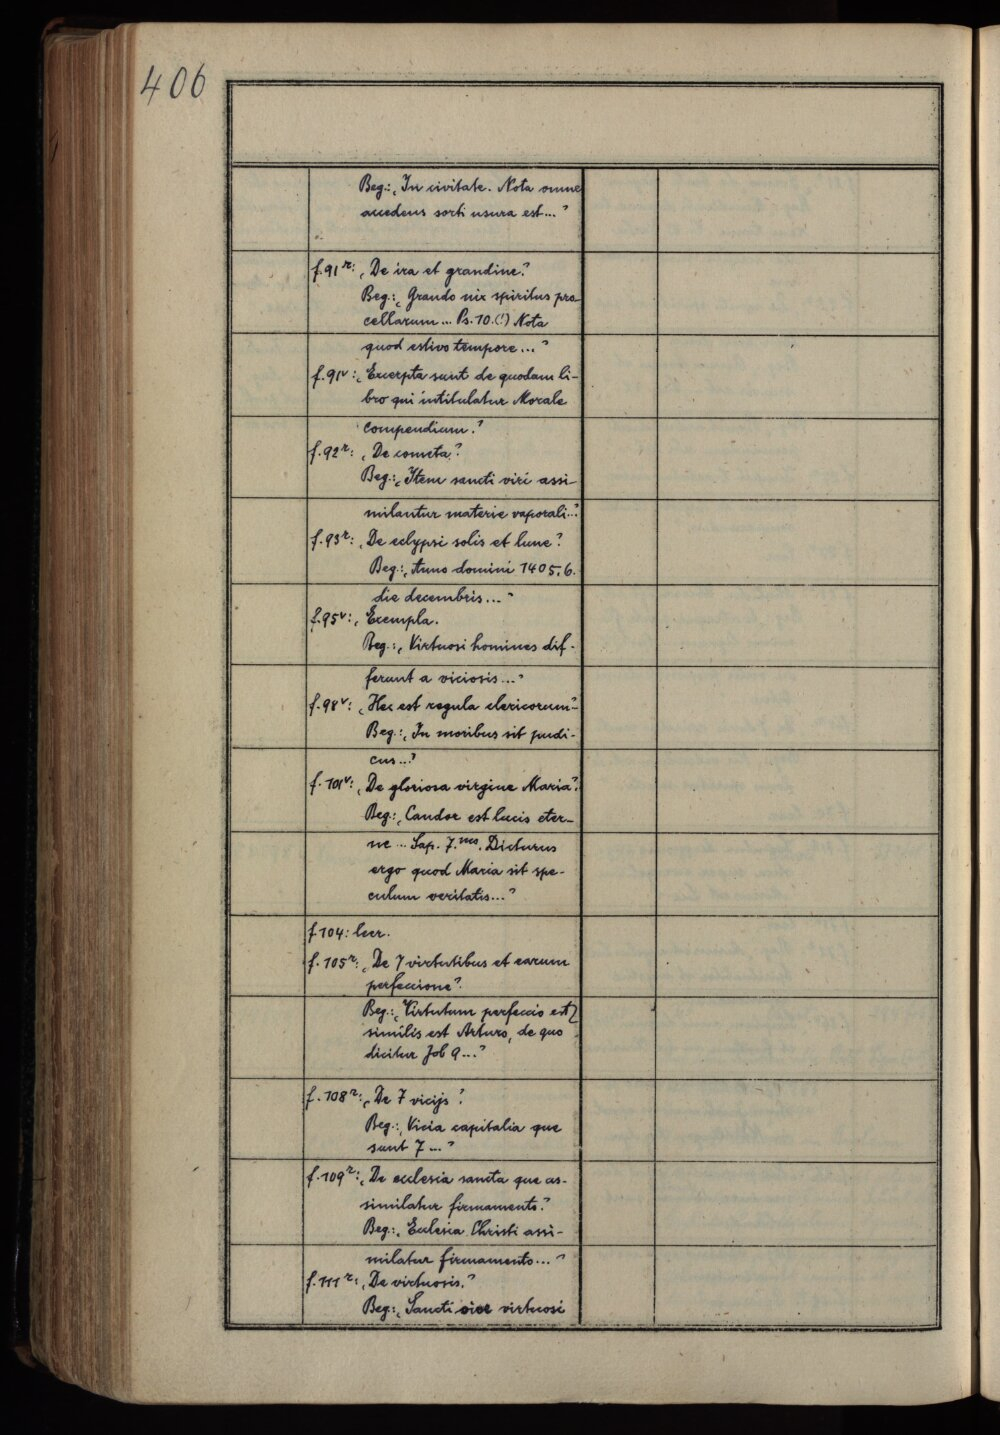 406
Beg.: „In civitate. Nota omne
accedens sorti usura est..."
f. 91r: „De ira et grandine."
Beg.: „Grando nix spiritus pro-
cellarum... Ps. 10.(!) Nota
quod estivo tempore..."
f. 91v: „Excerpta sunt de quodam li-
bro qui intitulatur Morale
compendium."
f. 92r: „De cometa."
Beg.: „Item sancti viri assi-
milantur materie vaporali..."
f. 93r: „De eclypsi solis et lune"
Beg.: „Anno domini 1405. 6.
die decembris..."
f. 95v: „Exempla.
Beg.: „Virtuosi homines dif-
ferunt a viciosis..."
f. 98v: „Hec est regula clericorum"
Beg.: „In moribus sit pudi-
cus..."
f. 101v: „De gloriosa virgine Maria".
Beg.: „Candor est lucis eter-
ne... Sap. 7.mo. Dicturus
ergo quod Maria sit spe-
culum veritatis..."
f. 104: leer.
f. 105r: „De 7 virtutibus et earum
perfeccione".
Beg.: „Virtutum perfeccio est
similis est Arturo, de quo
dicitur Job 9..."
f. 108r: „De 7 vicijs".
Beg.: „Vicia capitalia que
sunt 7..."
f. 109r: „De ecclesia sancta que as-
similatur firmamento."
Beg.: „Ecclesia Christi assi-
milatur firmamento..."
f. 111r: „De virtuosis."
Beg.: „Sancti virtuosi